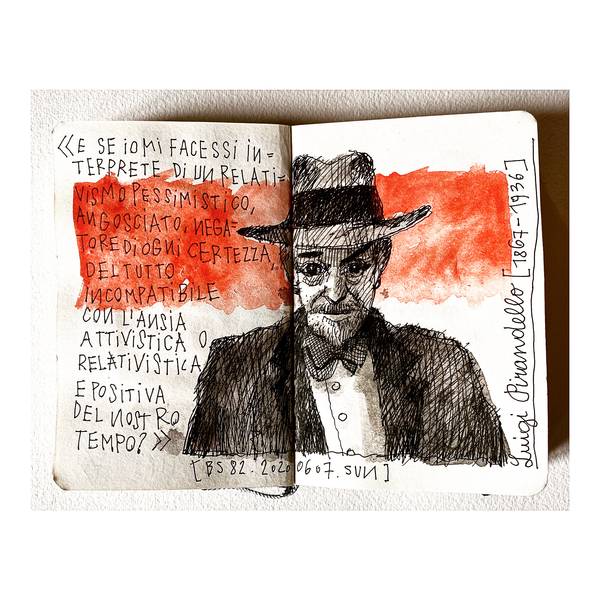 «E SE IO MI FACESSI IN=
TERPRETE DI UN RELATI=
VISMO PESSIMISTICO,
ANGOSCIATO, NEGA=
TORE DI OGNI CERTEZZA
DEL TUTTO
INCOMPATIBILE
CON L'ANSIA
ATTIVISTICA O
RELATIVISTICA
E POSITIVA
DEL NOSTRO
TEMPO?»
[BS 82. 2020 06 07. SUN]
Luigi Pirandello [1867-1936]